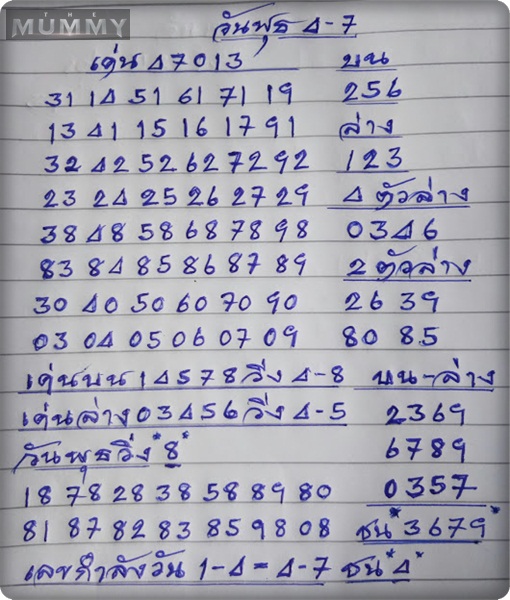 MUMMY
วันพุธ 4-7
เด่น 47013 บน
31 14 51 61 71 19 256
13 41 15 16 17 91 ล่าง
32 42 52 62 72 92 123
23 24 25 26 27 29 4 ตัวล่าง
38 48 58 68 78 98 0346
83 84 85 86 87 89 2 ตัวล่าง
30 40 50 60 70 90 26 39
03 04 05 06 07 09 80 85
เด่นบน 14578 วิ่ง 4-8 บน-ล่าง
เด่นล่าง 03456 วิ่ง 4-5 2369
วันพุธวิ่ง *8* 6789
18 78 28 38 58 89 80 0357
81 87 82 83 85 98 08 ชน *3679*
เลขกำลังวัน 1-4 = 4-7 ชน *4*